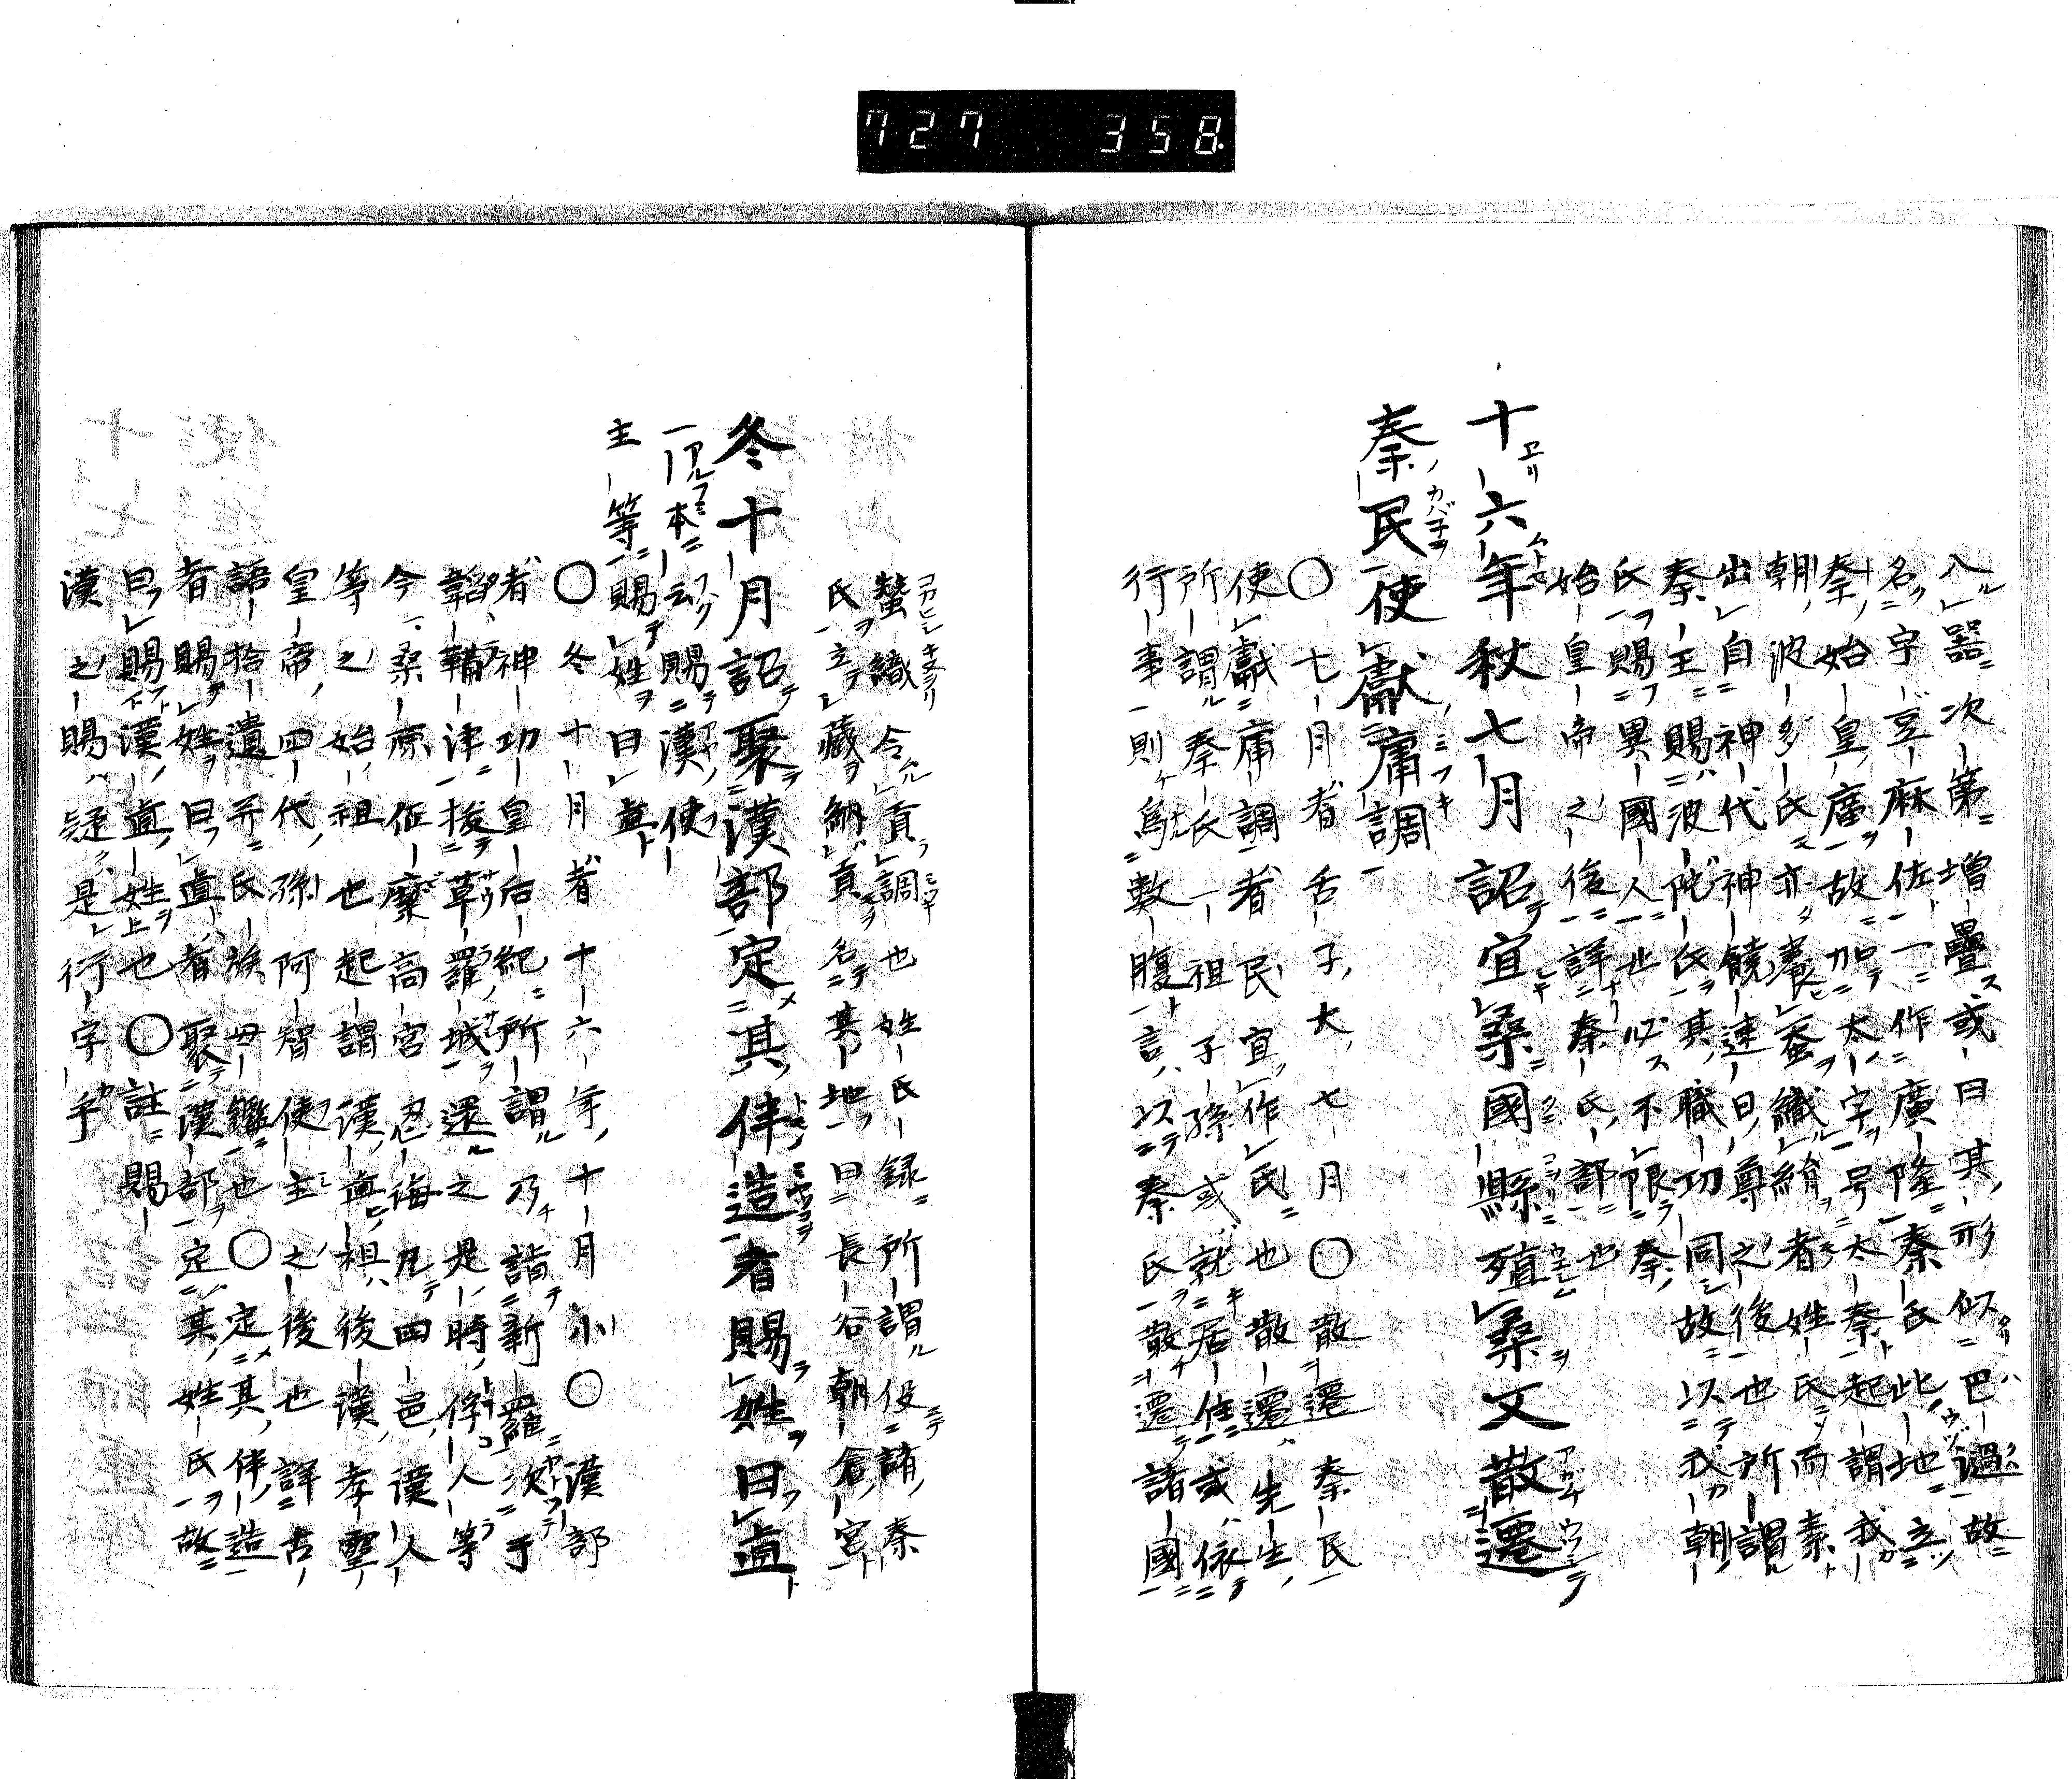 727 358
入器次第増疊或曰其形似巴過故
名字豆麻佐一作廣隆秦氏此地立
秦始皇廣故加太字号太秦起謂我
朝波多氏亦養蚕織絹者姓氏而素
出自神代神饒速日尊之後也所謂
秦王賜波陀氏其職功同故以我朝
氏賜異國人也必不限秦
始皇帝之後詳秦氏部也
十六年秋七月詔宜桑國縣殖桑又散遷
秦民使獻庸調
〇七月者舌子大七月〇散遷秦民
使獻庸調者民宜作氏也散遷先生
所謂秦氏一祖子孫或就居住或依
行事則為數腹言以秦氏散遷諸國
蠶織令貢調也姓氏録所謂役諸秦
氏立藏納貢名其地曰長谷朝倉宮
冬十月詔聚漢部定其伴造者賜姓曰直
一本云賜漢使
主等賜姓曰直
〇冬十月者十六年十月小〇漢部
者神功皇后紀所謂乃詣新羅次于
蹈鞴津拔草羅城還之是時俘人等
今桑原佐糜高宮忍海凡四邑漢人
等之始祖也起謂漢直祖後漢孝靈
皇帝四代孫阿智使主之後也詳古
語拾遺并氏族母鑑也〇定其伴造
者賜姓曰直者聚漢部定其姓氏故
曰賜漢直姓也〇註賜
漢之賜疑是行字乎